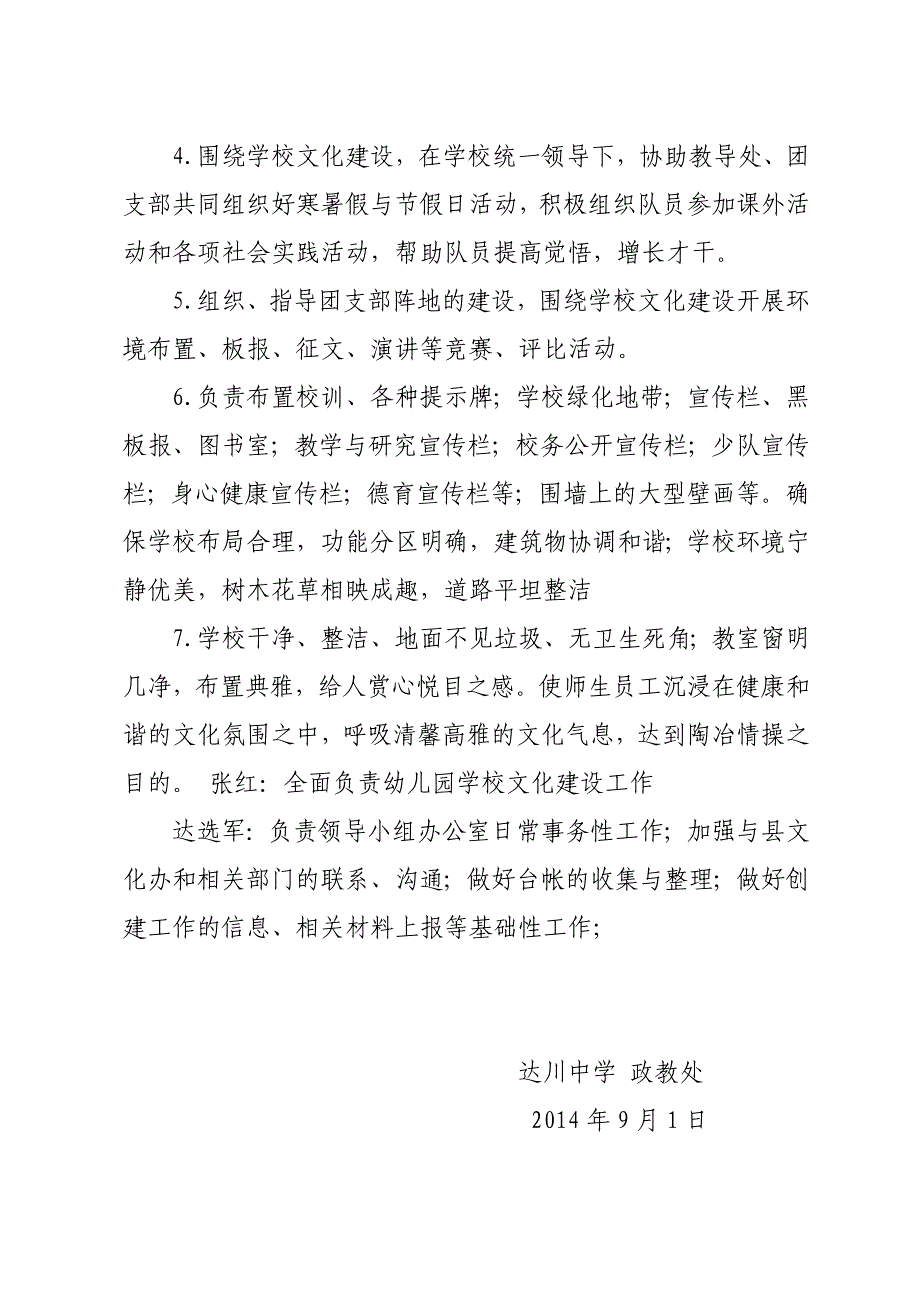 4.围绕学校文化建设，在学校统一领导下，协助教导处、团
支部共同组织好寒暑假与节假日活动，积极组织队员参加课外活
动和各项社会实践活动，帮助队员提高觉悟，增长才干。
5.组织、指导团支部阵地的建设，围绕学校文化建设开展环
境布置、板报、征文、演讲等竞赛、评比活动。
6.负责布置校训、各种提示牌；学校绿化地带；宣传栏、黑
板报、图书室；教学与研究宣传栏；校务公开宣传栏；少队宣传
栏；身心健康宣传栏；德育宣传栏等；围墙上的大型壁画等。确
保学校布局合理，功能分区明确，建筑物协调和谐；学校环境宁
静优美，树木花草相映成趣，道路平坦整洁
7.学校干净、整洁、地面不见垃圾、无卫生死角；教室窗明
几净，布置典雅，给人赏心悦目之感。使师生员工沉浸在健康和
谐的文化氛围之中，呼吸清馨高雅的文化气息，达到陶冶情操之
目的。 张红：全面负责幼儿园学校文化建设工作
达选军：负责领导小组办公室日常事务性工作；加强与县文
化办和相关部门的联系、沟通；做好台帐的收集与整理；做好创
建工作的信息、相关材料上报等基础性工作；
达川中学 政教处
2014年9月1日